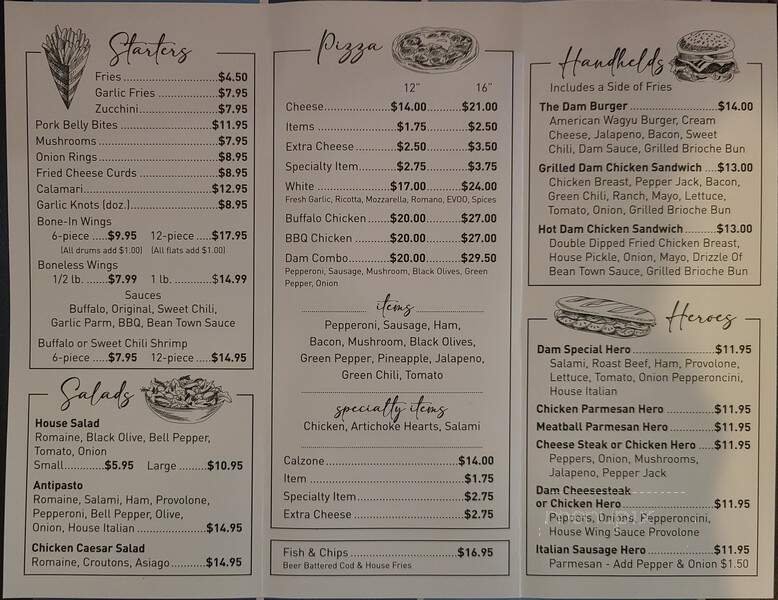 Starters
Fries $4.50
Garlic Fries $7.95
Zucchini $7.95
Pork Belly Bites $11.95
Mushrooms $7.95
Onion Rings $8.95
Fried Cheese Curds $8.95
Calamari $12.95
Garlic Knots (doz.) $8.95
Bone-In Wings
6-piece $9.95 12-piece $17.95
(All drums add $1.00) (All flats add $1.00)
Boneless Wings
1/2 lb. $7.99 1 lb. $14.99
Sauces
Buffalo, Original, Sweet Chili,
Garlic Parm, BBQ, Bean Town Sauce
Buffalo or Sweet Chili Shrimp
6-piece $7.95 12-piece $14.95
Salads
House Salad
Romaine, Black Olive, Bell Pepper,
Tomato, Onion
Small $5.95 Large $10.95
Antipasto
Romaine, Salami, Ham, Provolone,
Pepperoni, Bell Pepper, Olive,
Onion, House Italian $14.95
Chicken Caesar Salad
Romaine, Croutons, Asiago $14.95
Pizza
12" 16"
Cheese $14.00 $21.00
Items $1.75 $2.50
Extra Cheese $2.50 $3.50
Specialty Item $2.75 $3.75
White $17.00 $24.00
Fresh Garlic, Ricotta, Mozzarella, Romano, EVOO, Spices
Buffalo Chicken $20.00 $27.00
BBQ Chicken $20.00 $27.00
Dam Combo $20.00 $29.50
Pepperoni, Sausage, Mushroom, Black Olives, Green
Pepper, Onion
items
Pepperoni, Sausage, Ham,
Bacon, Mushroom, Black Olives,
Green Pepper, Pineapple, Jalapeno,
Green Chili, Tomato
specialty items
Chicken, Artichoke Hearts, Salami
Calzone $14.00
Item $1.75
Specialty Item $2.75
Extra Cheese $2.75
Fish & Chips $16.95
Beer Battered Cod & House Fries
Handhelds
Includes a Side of Fries
The Dam Burger $14.00
American Wagyu Burger, Cream
Cheese, Jalapeno, Bacon, Sweet
Chili, Dam Sauce, Grilled Brioche Bun
Grilled Dam Chicken Sandwich $13.00
Chicken Breast, Pepper Jack, Bacon,
Green Chili, Ranch, Mayo, Lettuce,
Tomato, Onion, Grilled Brioche Bun
Hot Dam Chicken Sandwich $13.00
Double Dipped Fried Chicken Breast,
House Pickle, Onion, Mayo, Drizzle Of
Bean Town Sauce, Grilled Brioche Bun
Heroes
Dam Special Hero $11.95
Salami, Roast Beef, Ham, Provolone,
Lettuce, Tomato, Onion Pepperoncini,
House Italian
Chicken Parmesan Hero $11.95
Meatball Parmesan Hero $11.95
Cheese Steak or Chicken Hero $11.95
Peppers, Onion, Mushrooms,
Jalapeno, Pepper Jack
Dam Cheesesteak
or Chicken Hero $11.95
Peppers, Onions, Pepperoncini,
House Wing Sauce Provolone
Italian Sausage Hero $11.95
Parmesan - Add Pepper & Onion $1.50